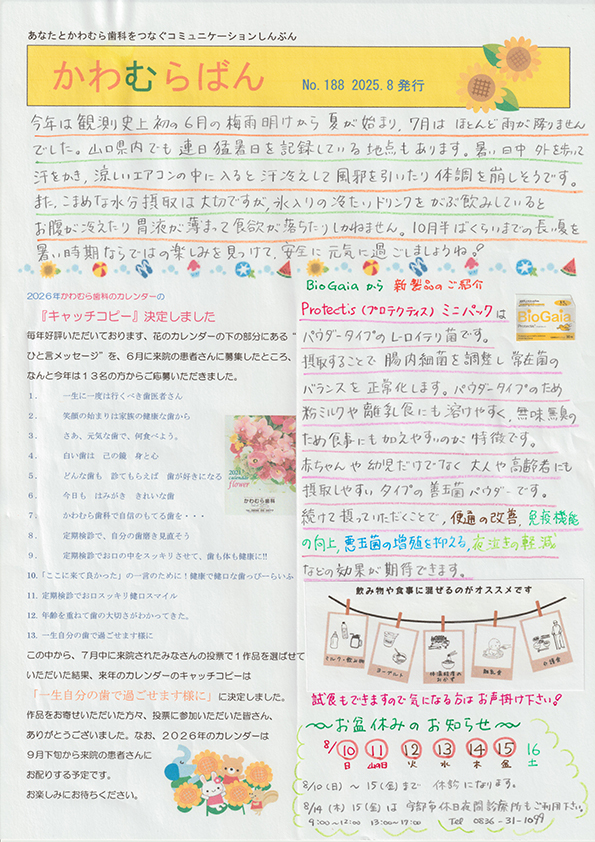 あなたとかわむら歯科をつなぐコミュニケーションしんぶん
かわむらばん
No.188 2025.8発行
今年は観測史上初の6月の梅雨明けから夏が始まり、7月はほとんど雨が降りません
でした。山口県内でも連日猛暑日を記録している地点もあります。暑い日中外を歩って
汗をかき、涼しいエアコンの中に入ると汗冷えして風邪を引いたり体調を崩しそうです。
また、こまめな水分摂取は大切ですが、氷入りの冷たいドリンクをがぶ飲みしていると
お腹が冷えたり胃液が薄まって食欲が落ちたりしかねません。10月半ばくらいまでの長い夏を
暑い時期ならではの楽しみを見つけて、安全に元気に過ごしましょうね!
2026年かわむら歯科のカレンダーの
『キャッチコピー』決定しました
毎年好評いただいております、花のカレンダーの下の部分にある“
ひと言メッセージ”を、6月に来院の患者さんに募集したところ、
なんと今年は13名の方からご応募いただきました。
1. 一生に一度は行くべき歯医者さん
2. 笑顔の始まりは家族の健康な歯から
3. さあ、元気な歯で、何食べよう。
4. 白い歯は 己の鏡 身と心
5. どんな歯も 診てもらえば 歯が好きになる
6. 今日も はみがき きれいな歯
7. かわむら歯科で自信のもてる歯を・・・
8. 定期検診で、自分の歯磨き見直そう
9. 定期検診でお口の中をスッキリさせて、歯も体も健康に!!
10.「ここに来て良かった」の一言のために!健康で健口な歯っぴーらいふ
11. 定期検診でお口スッキリ健口スマイル
12. 年齢を重ねて歯の大切さがわかってきた。
13. 一生自分の歯で過ごせます様に
この中から、7月中に来院されたみなさんの投票で1作品を選ばせて
いただいた結果、来年のカレンダーのキャッチコピーは
「一生自分の歯で過ごせます様に」に決定しました。
作品をお寄せいただいた方々、投票に参加いただいた皆さん、
ありがとうございました。なお、2026年のカレンダーは
9月下旬から来院の患者さんに
お配りする予定です。
お楽しみにお待ちください。
calendar
flower
かわむら歯科
BioGaiaから 新製品のご紹介
Protectis(プロテクティス)ミニパックは
BioGaia
Protectis
パウダータイプのL-ロイテリ菌です。
摂取することで腸内細菌を調整し常在菌の
バランスを正常化します。パウダータイプのため
粉ミルクや離乳食にも溶けやすく、無味無臭の
ため食事にも加えやすいのが特徴です。
赤ちゃんや幼児だけでなく大人や高齢者にも
摂取しやすいタイプの善玉菌パウダーです。
続けて摂っていただくことで、便通の改善、免疫機能
の向上、悪玉菌の増殖を抑える、夜泣きの軽減
などの効果が期待できます。
飲み物や食事に混ぜるのがオススメです
ミルク・飲み物
ヨーグルト
体温程度のおかず
離乳食
介護食
試食もできますので気になる方はお声掛け下さい!
〜お盆休みのお知らせ〜
8/10 11 12 13 14 15 16
日 山の日 火 水 木 金 土
8/10(日)〜15(金)まで 休診になります。
8/14(木)15(金)は 宇部市休日夜間診療所もご利用下さい。
9:00〜12:00 13:00〜17:00 Tel 0836-31-1099